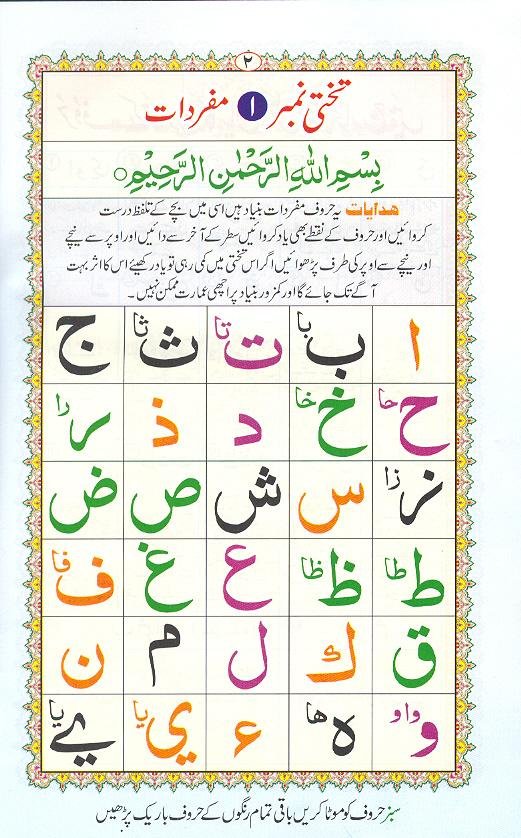 ۲
تختی نمبر ۱ مفردات
بِسْمِ اللّٰهِ الرَّحْمٰنِ الرَّحِيْمِ ○
هدایات یہ حروف مفردات بنیاد ہیں اسی میں بچے کے تلفظ درست
کروائیں اور حروف کے نقطے بھی یاد کروائیں سطر کے آخر سے دائیں اور اوپر سے نیچے
اور نیچے سے اوپر کی طرف پڑھوائیں اگر اس تختی میں کمی رہی تو یاد رکھیئے اس کا اثر بہت
آگے تک جائے گا اور کمزور بنیاد پر اچھی عمارت ممکن نہیں۔
ا ب با ت تا ث ثا ج
ح حا خ خا د ذ ر را
ز زا س ش ص ض
ط طا ظ ظا ع غ ف فا
ق ك ل م ن
و واو ه ها ء ي يا ے يا
سبز حروف کو موٹا کریں باقی تمام رنگوں کے حروف باریک پڑھیں